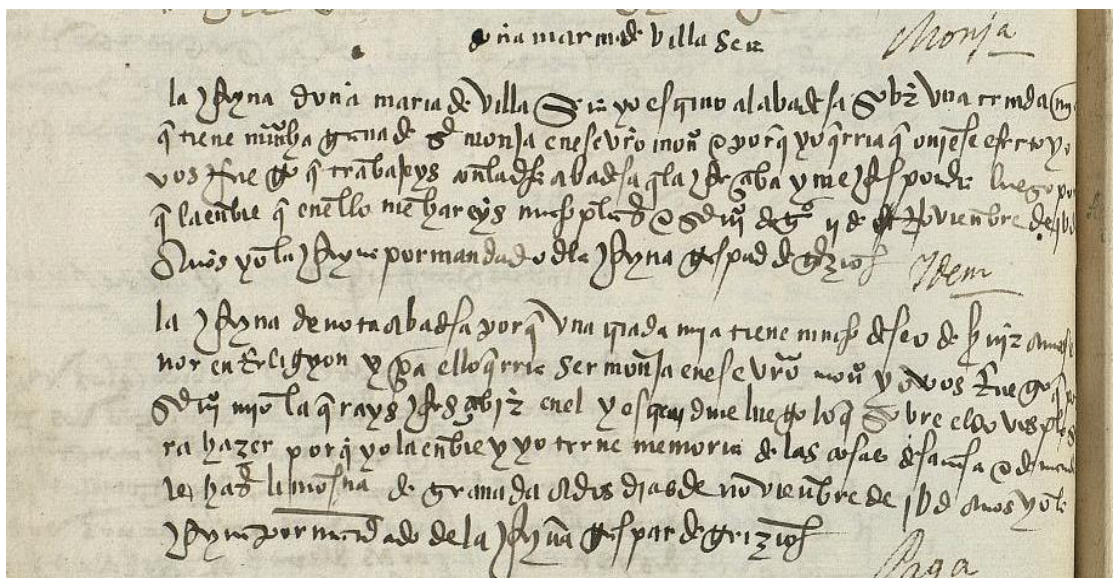 doña maria de villa Monja
la Reyna doña maria de villa yo escriuo al abadesa sobre una criada mya
q̃ tiene mucha gana de ser monja en ese vrõ mon̄ e porq̃ yo q̃rria q̃ ouiese efecto yo
vos Ruego q̃ trabajeys con la dicha abadesa q̃ la Resçiba y me Responda luego por
q̃ la enbie q̃ en ello me hareys mucho plazer e serui⁰ de de nouienbre de
Años yo la Reyna por mandado de la Reyna gaspar de grizio
Idem
la Reyna deuota abadesa porq̃ una criada mya tiene mucho deseo de biuir
en Religyon y pa ello q̃rria ser monja en ese vrõ mon̄ yo vos Ruego q̃ por
serui⁰ mio la q̃rays Resçebir en el y escreuidme luego lo q̃ sobre ello vos plaze
ra hazer porq̃ yo la enbie y yo terne memoria de las cosas desa casa e de mandar
le hazer limosna de granada a dos dias de nouienbre de jVd años yo la
Reyna por mandado de la Reyna gaspar de grizio
Paga